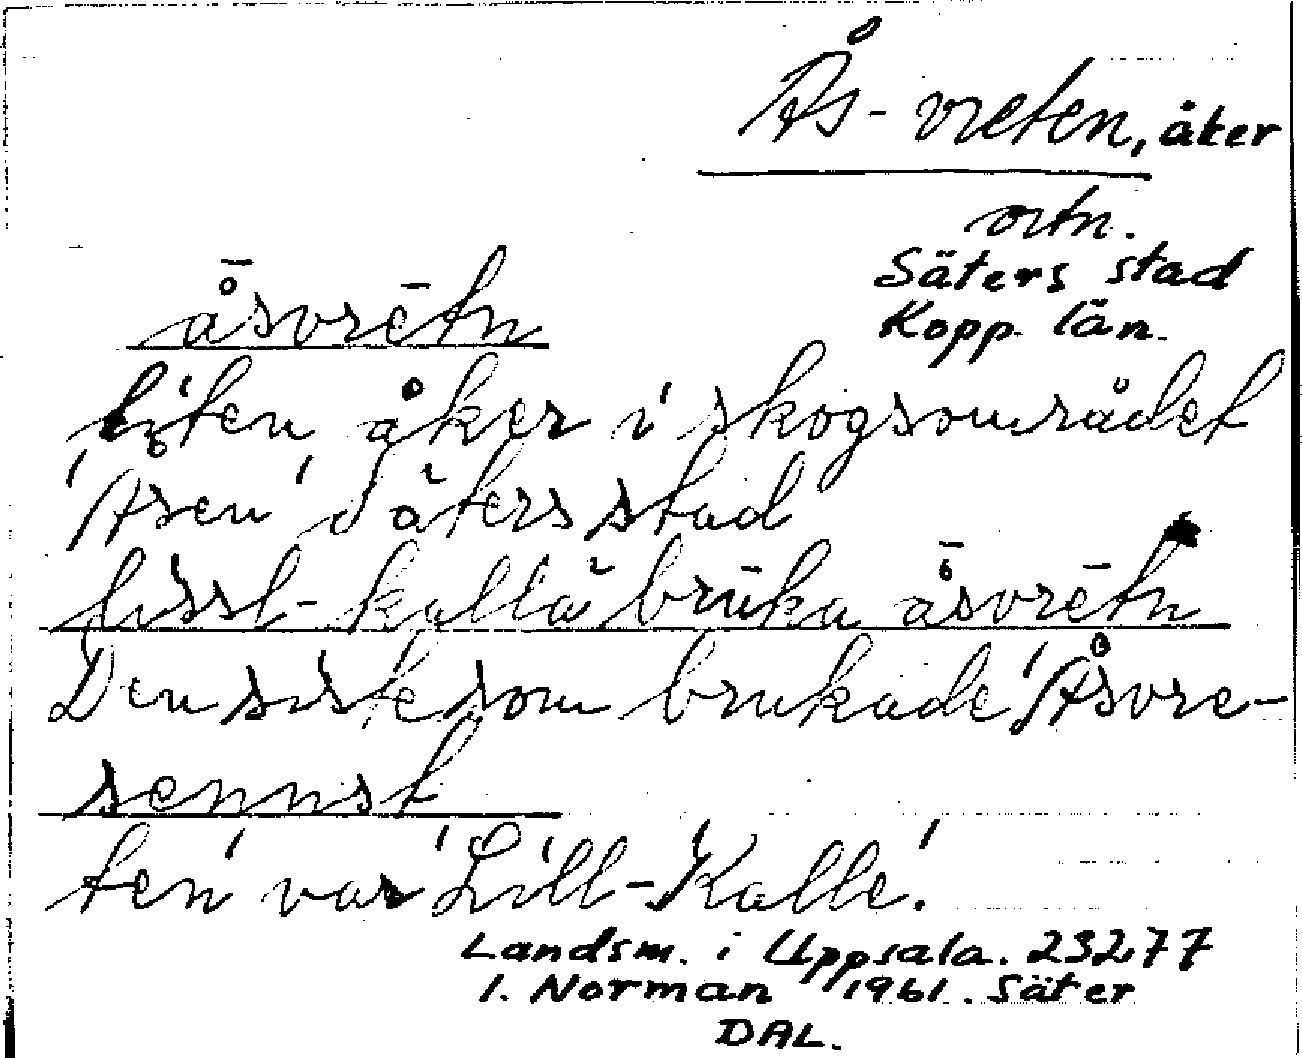 Ås-vreten, åker
ortn.
Säters stad
Kopp. län.
å̄svrētn
liten åker i skogsområdet
'Åsen' Säters stad
lissl-kallä brūka å̄svrētn
Den siste som brukade 'Åsvre-
sennst
ten' var 'Lill-Kalle'.
Landsm. i Uppsala. 23277
I. Norman 1961. Säter
DAL.